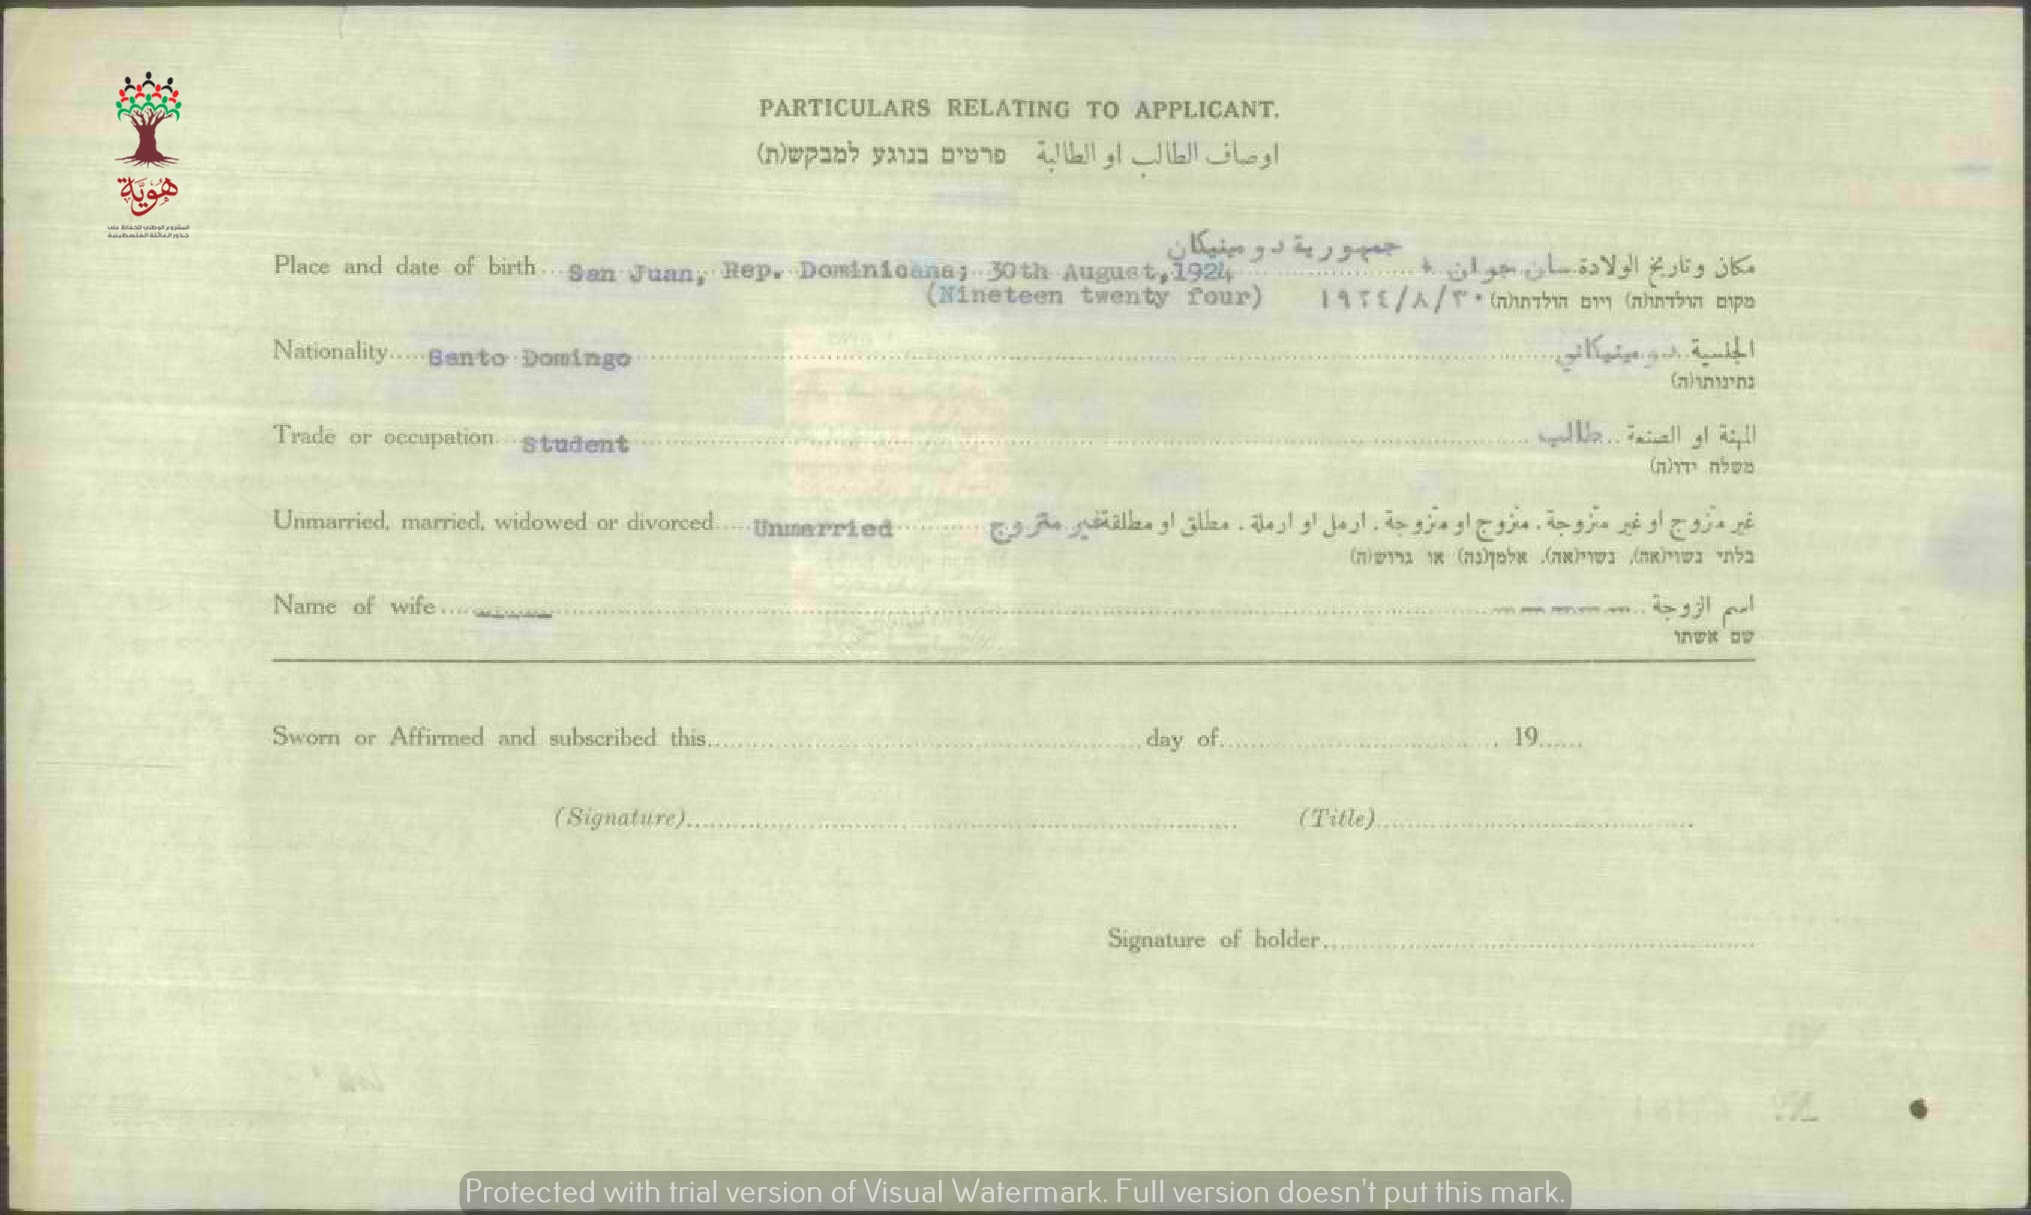 PARTICULARS RELATING TO APPLICANT.
اوصاف الطالب او الطالبة פרטים בנוגע למבקש(ת)
هُوِيَّة
المشروع الوطني للحفاظ على
جذور العائلة الفلسطينية
جمهورية دومينيكان
Place and date of birth San Juan, Rep. Dominicana; 30th August, 1924 مكان وتاريخ الولادة سان جوان
(Nineteen twenty four) ١٩٢٤/٨/٣٠ מקום הולדתו(ה) ויום הולדתו(ה)
Nationality Santo Domingo الجنسية دومينيكاني
נתינותו(ה)
Trade or occupation Student المهنة او الصنعة طالب
משלח ידו(ה)
Unmarried, married, widowed or divorced Unmarried غير متزوج او غير متزوجة، متزوج او متزوجة، ارمل او ارملة، مطلق او مطلقة غير متزوج
בלתי נשוי(אה), נשוי(אה), אלמן(נה) או גרוש(ה)
Name of wife ------ اسم الزوجة -----
שם אשתו
Sworn or Affirmed and subscribed this day of 19
(Signature) (Title)
Signature of holder
Protected with trial version of Visual Watermark. Full version doesn't put this mark.